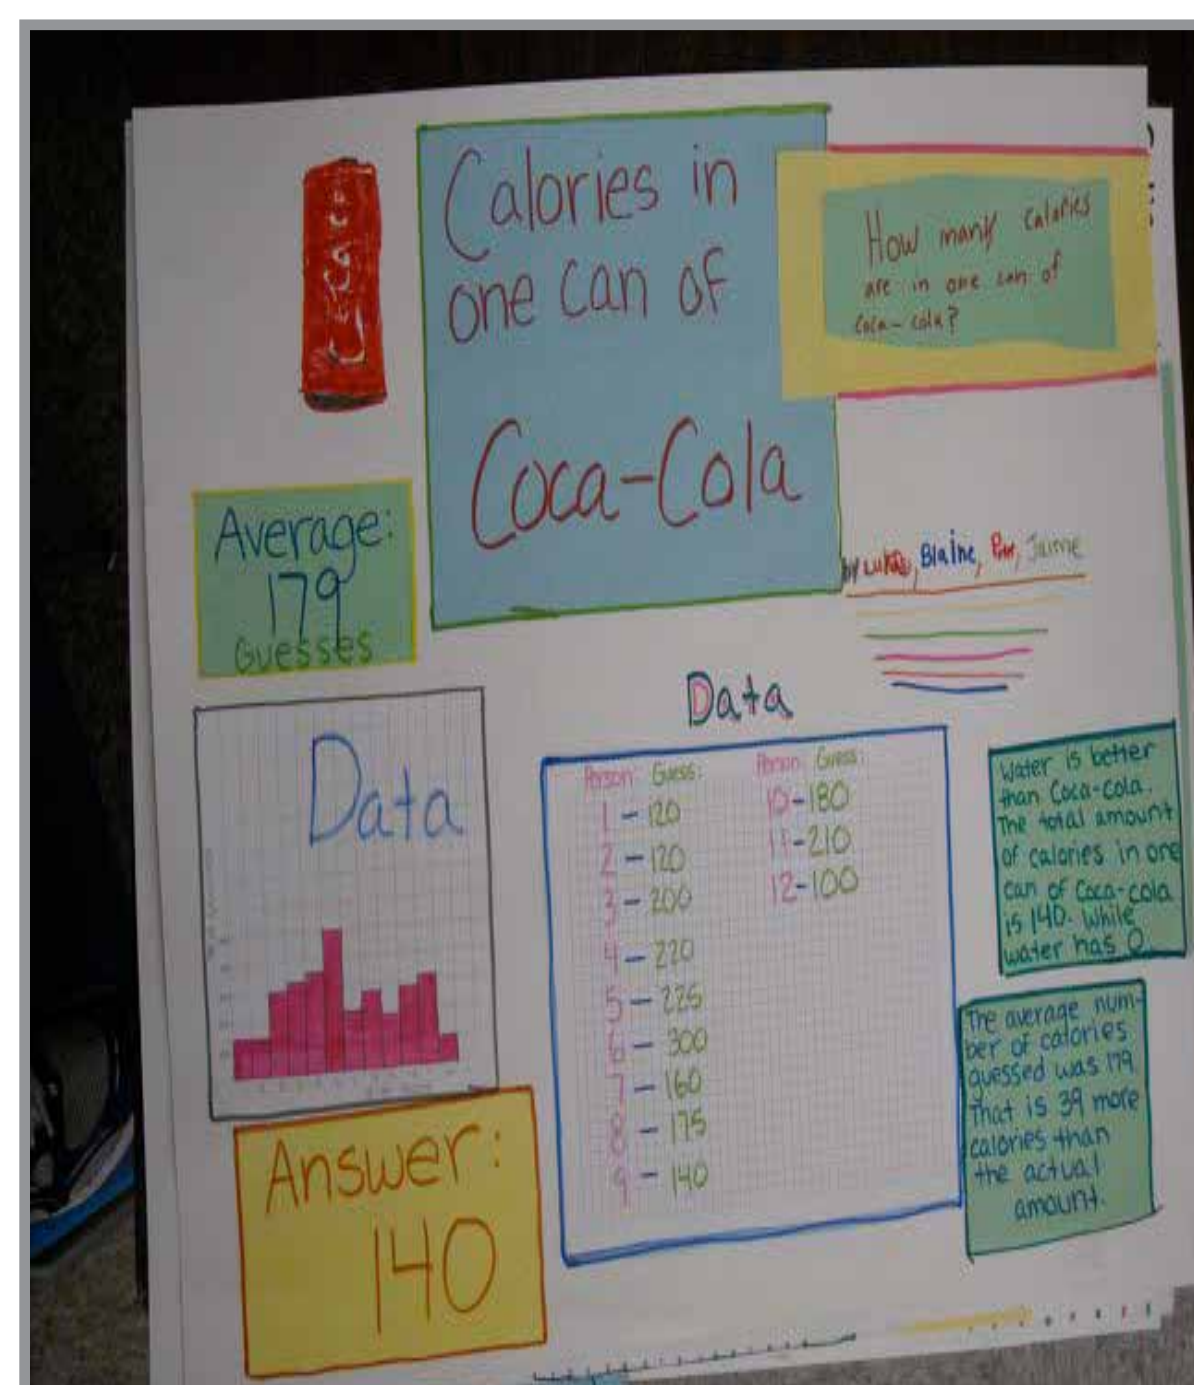 Calories in
one can of
Coca-Cola
How many calories
are in one can of
Coca-cola?
Average:
179
Guesses
by Lukas, Blaine, Jaime
Data
Data
Person: Guess:
1 - 120
2 - 120
3 - 200
4 - 220
5 - 225
6 - 300
7 - 160
8 - 175
9 - 140
Person: Guess:
10 - 180
11 - 210
12 - 100
Water is better
than Coca-cola.
The total amount
of calories in one
can of Coca-cola
is 140. While
water has 0.
The average num-
ber of calories
guessed was 179.
That is 39 more
calories than
the actual
amount.
Answer:
140